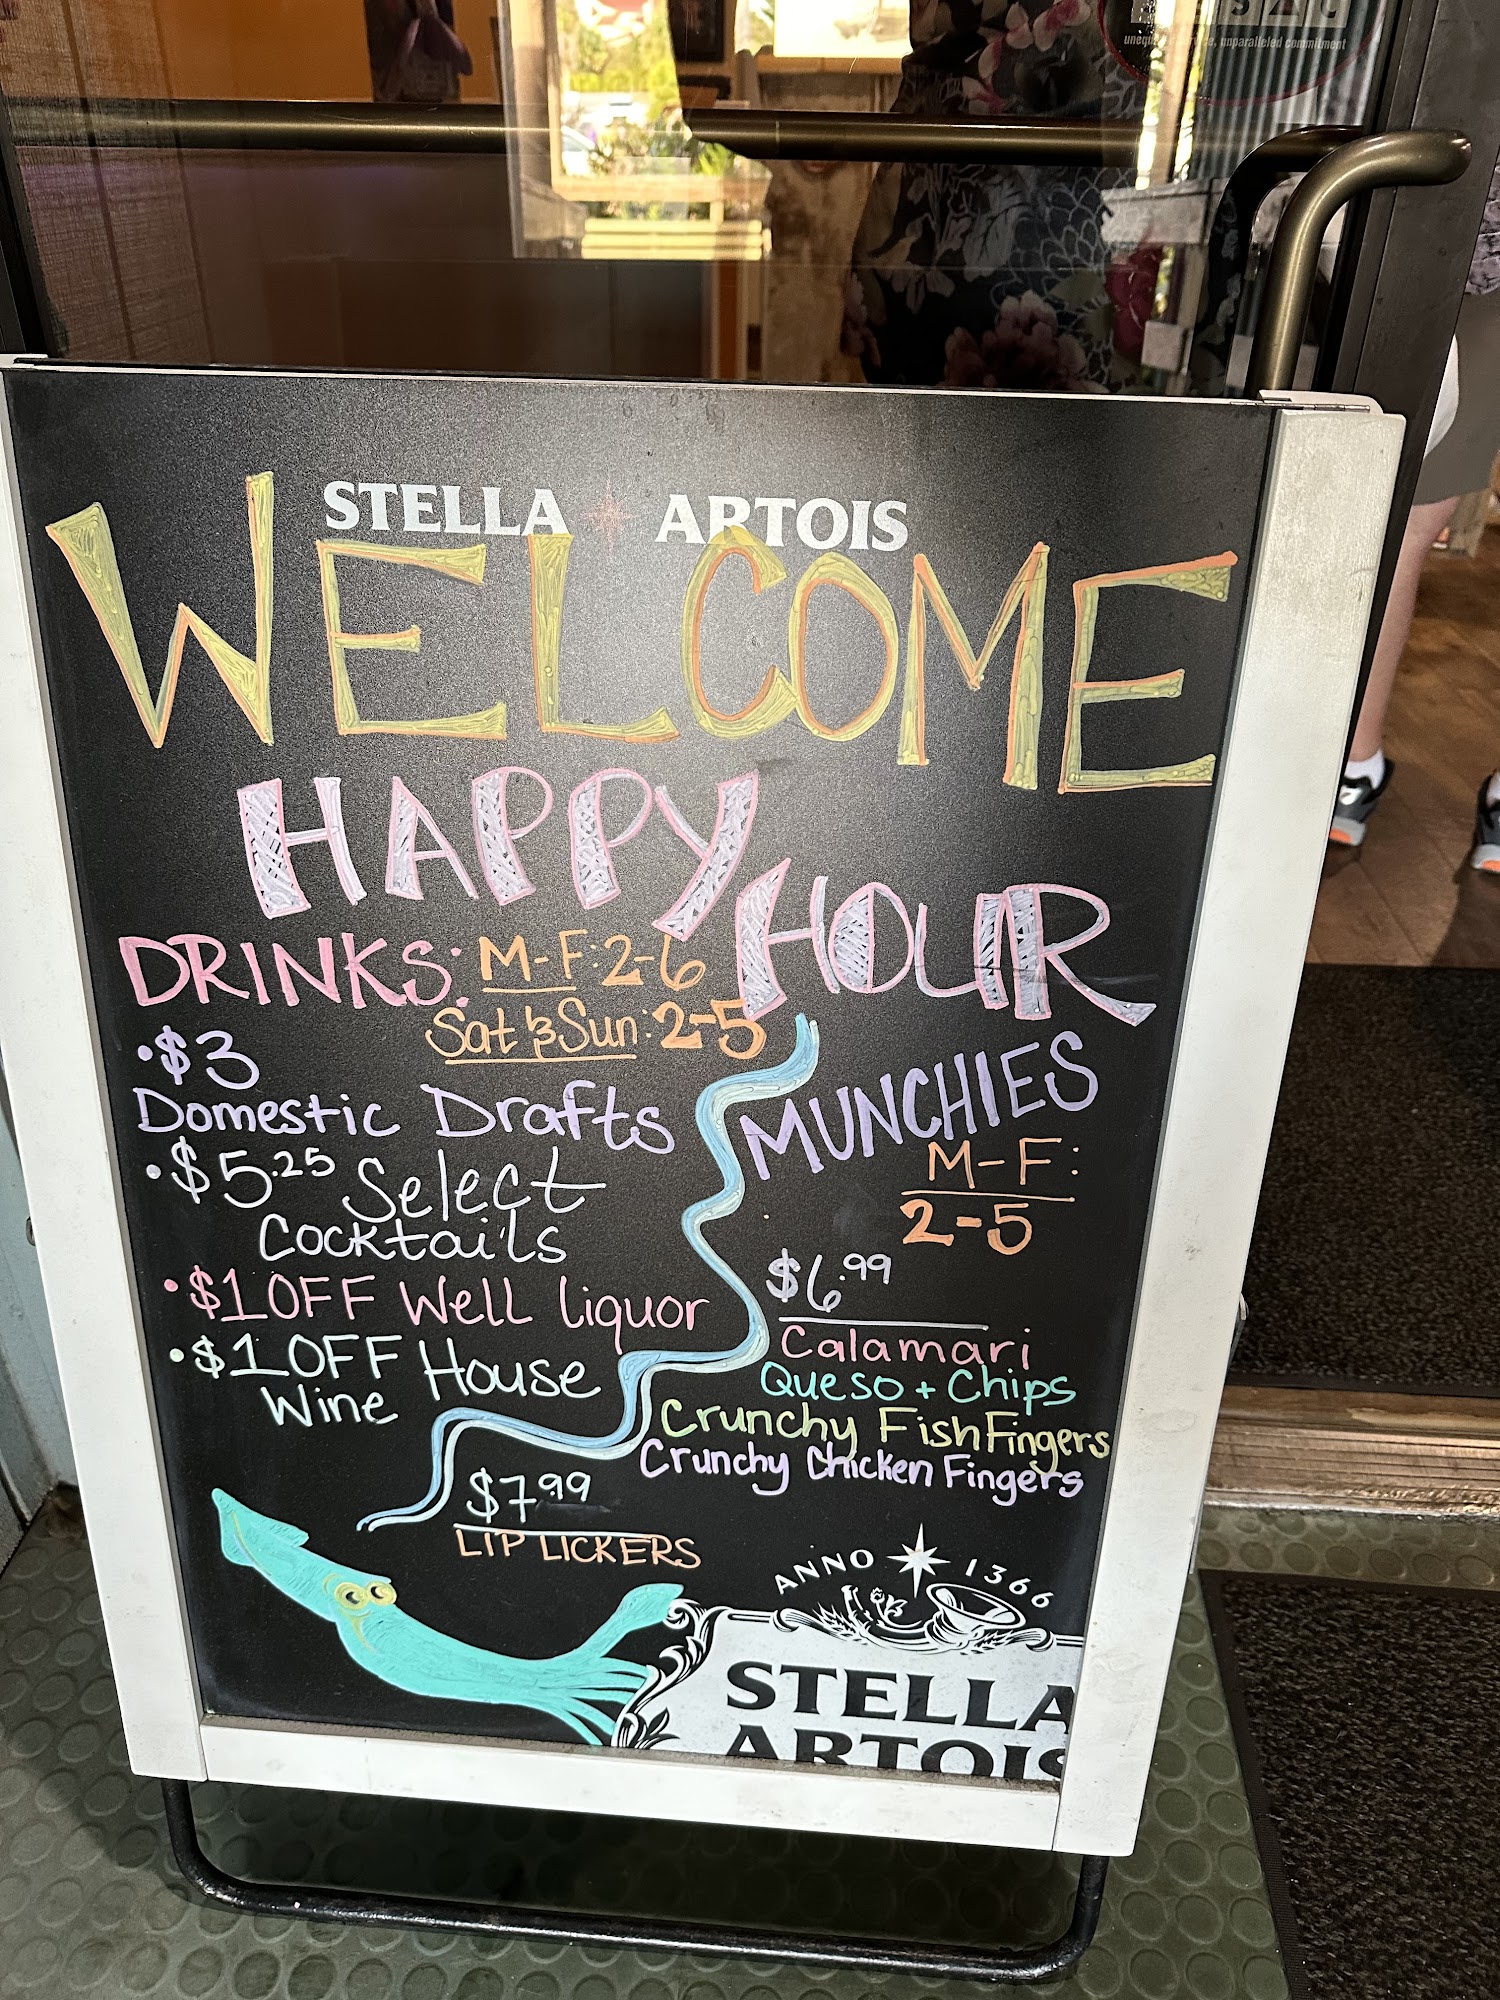 unparalleled commitment
STELLA ARTOIS
WELCOME
HAPPY
HOUR
DRINKS: M-F: 2-6
Sat & Sun: 2-5
• $3
Domestic Drafts
• $5.25 Select
Cocktails
• $1 OFF Well liquor
• $1 OFF House
Wine
MUNCHIES
M-F:
2-5
$6.99
Calamari
Queso + Chips
Crunchy Fish Fingers
Crunchy Chicken Fingers
$7.99
LIP LICKERS
ANNO 1366
STELLA
ARTOIS